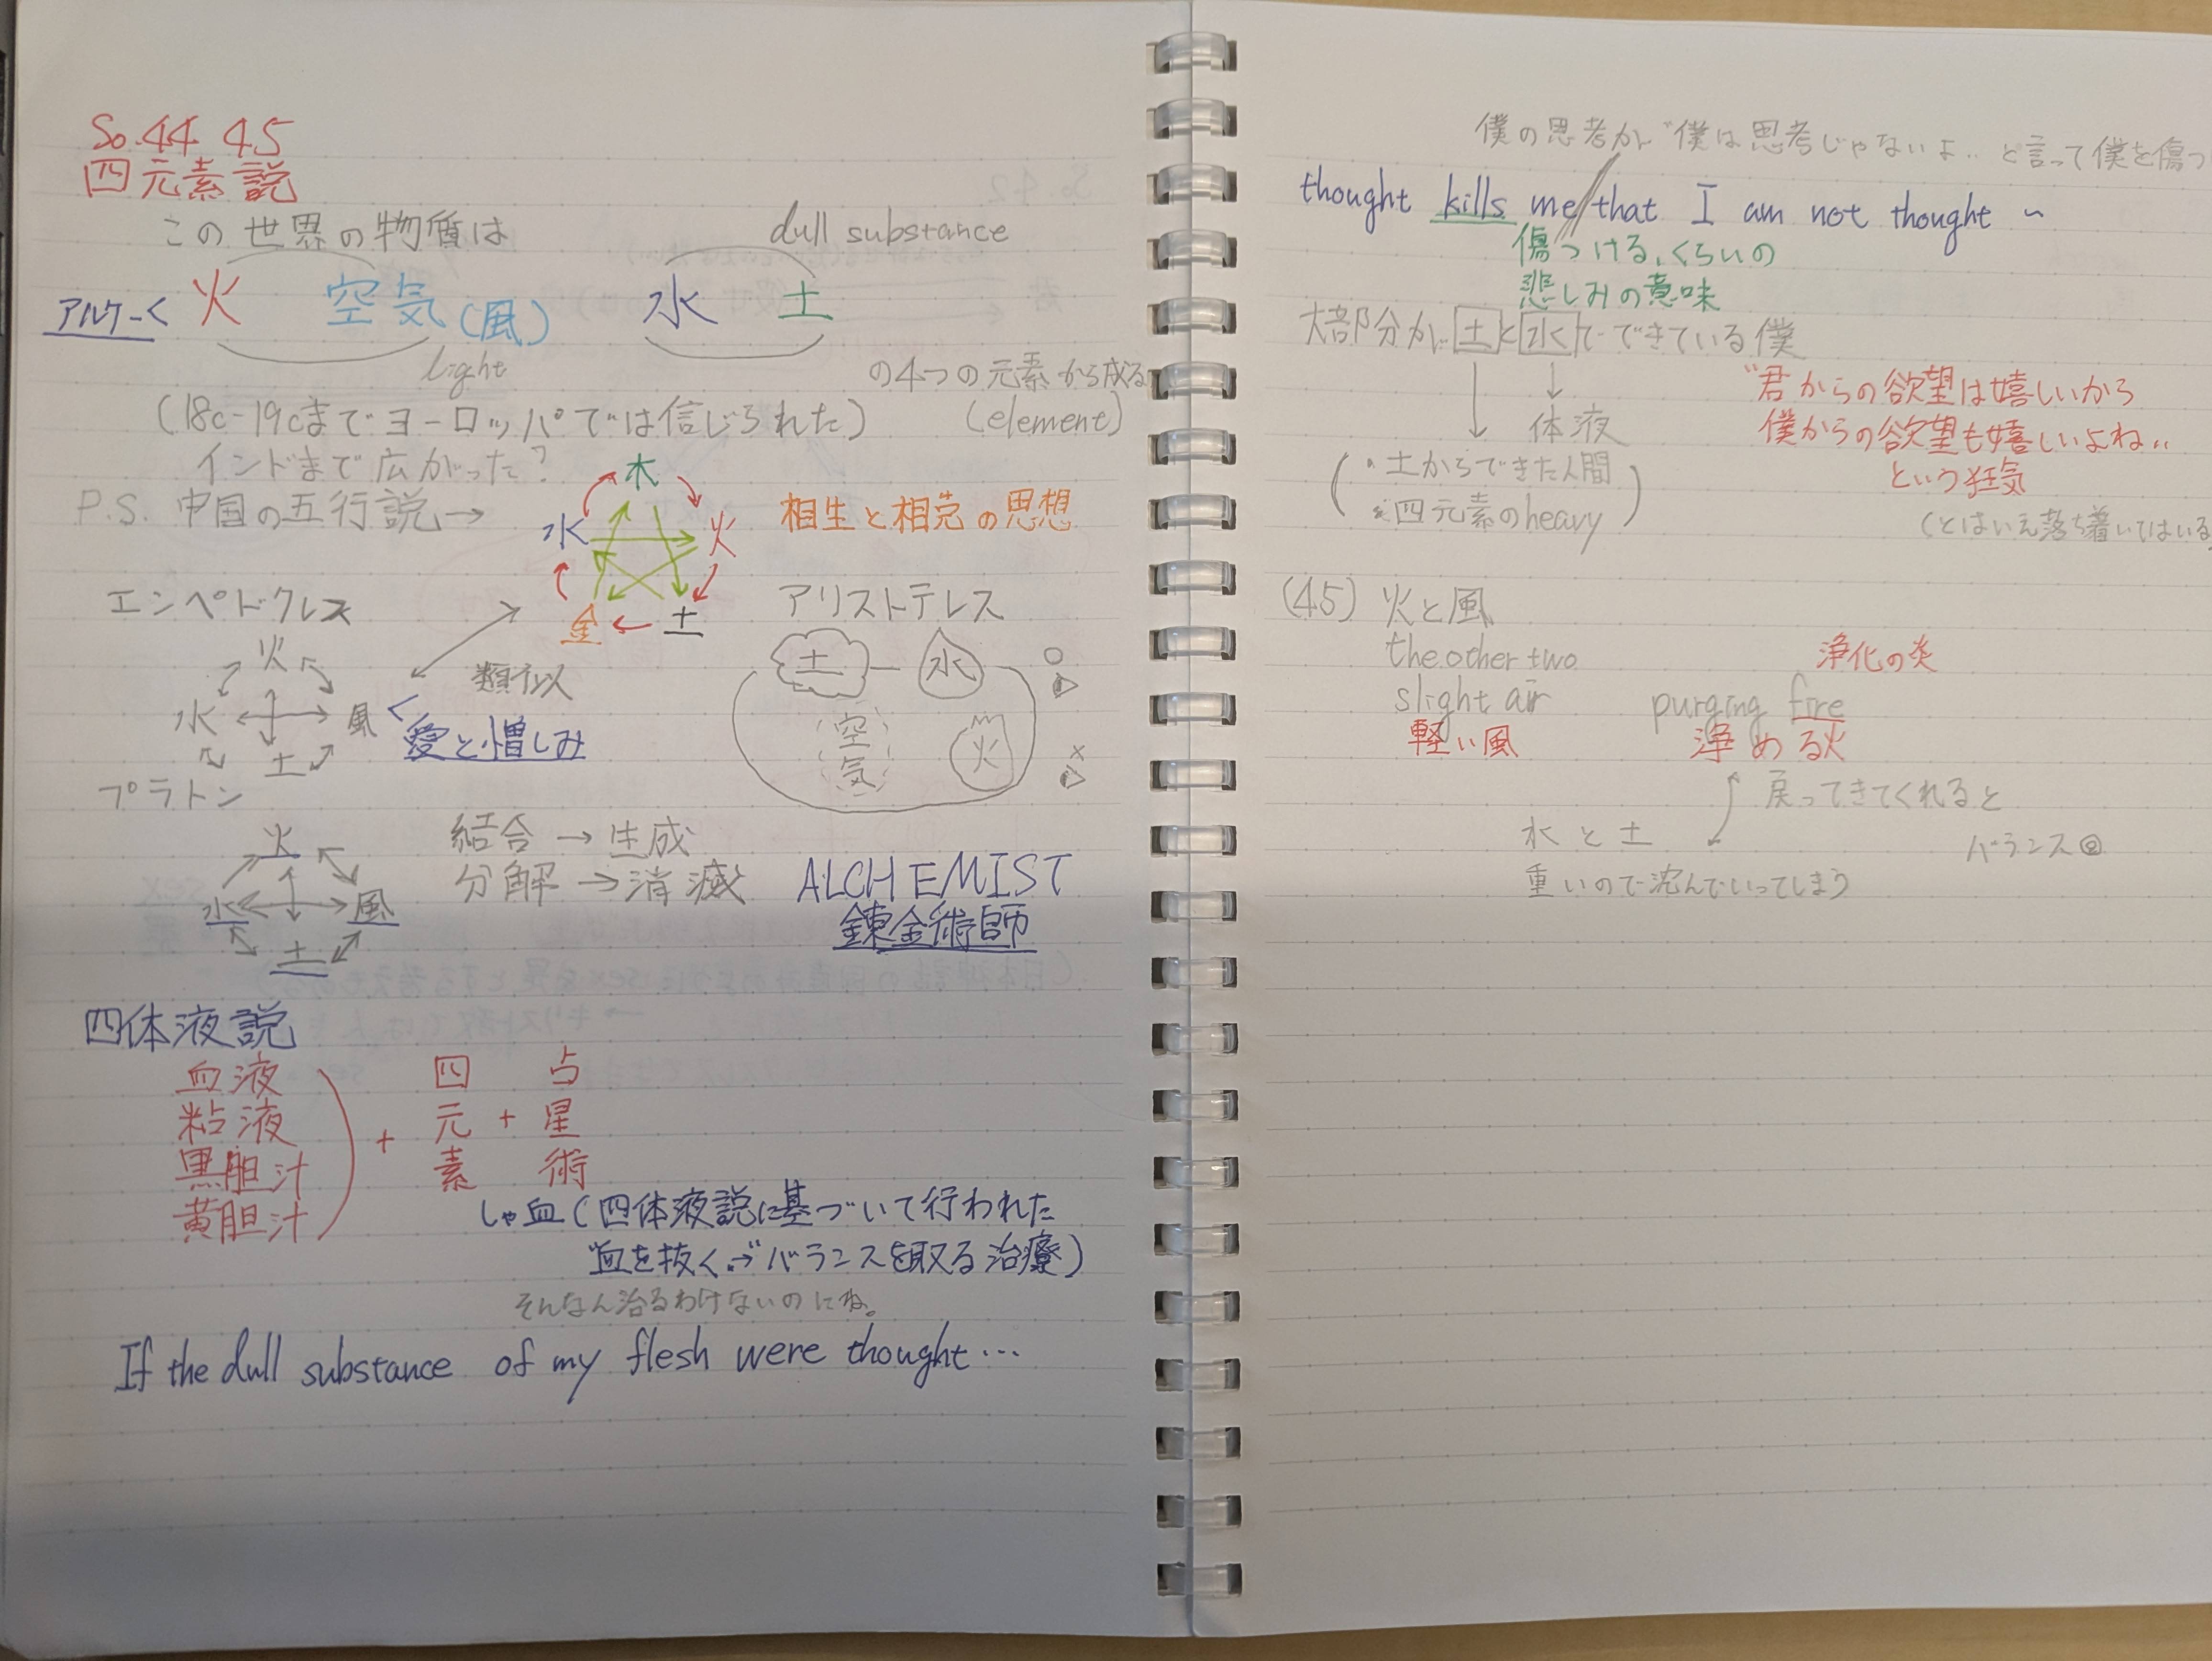 So.44 45
四元素説
この世界の物質は
dull substance
アルケーく 火 空気(風) 水 土
light
の4つの元素から成る
(18c-19cまでヨーロッパでは信じられた)
(element)
インドまで広がった?
P.S. 中国の五行説→
木
水 火
金 土
相生と相克の思想
エンペドクレス
火
水 風
土
類似
愛と憎しみ
アリストテレス
土 水 ○
空気 火 ×
プラトン
火
水 風
土
結合→生成
分解→消滅
ALCHEMIST
錬金術師
四体液説
血液
粘液
黒胆汁
黄胆汁
+ 四元素 + 占星術
しゃ血(四体液説に基づいて行われた
血を抜く→バランスを取る治療)
そんなん治るわけないのにね。
If the dull substance of my flesh were thought…
僕の思考が"僕は思考じゃないよ〟と言って僕を傷つ
thought kills me/that I am not thought ~
傷つける、くらいの
悲しみの意味
大部分が土と水でできている僕
体液
・土からできた人間
四元素のheavy
〝君からの欲望は嬉しいから
僕からの欲望も嬉しいよね〟
という狂気
(とはいえ落ち着いてはいる
(45) 火と風
the other two
浄化の炎
slight air purging fire
軽い風 浄める火
戻ってきてくれると
水と土
バランス◎
重いので沈んでいってしまう